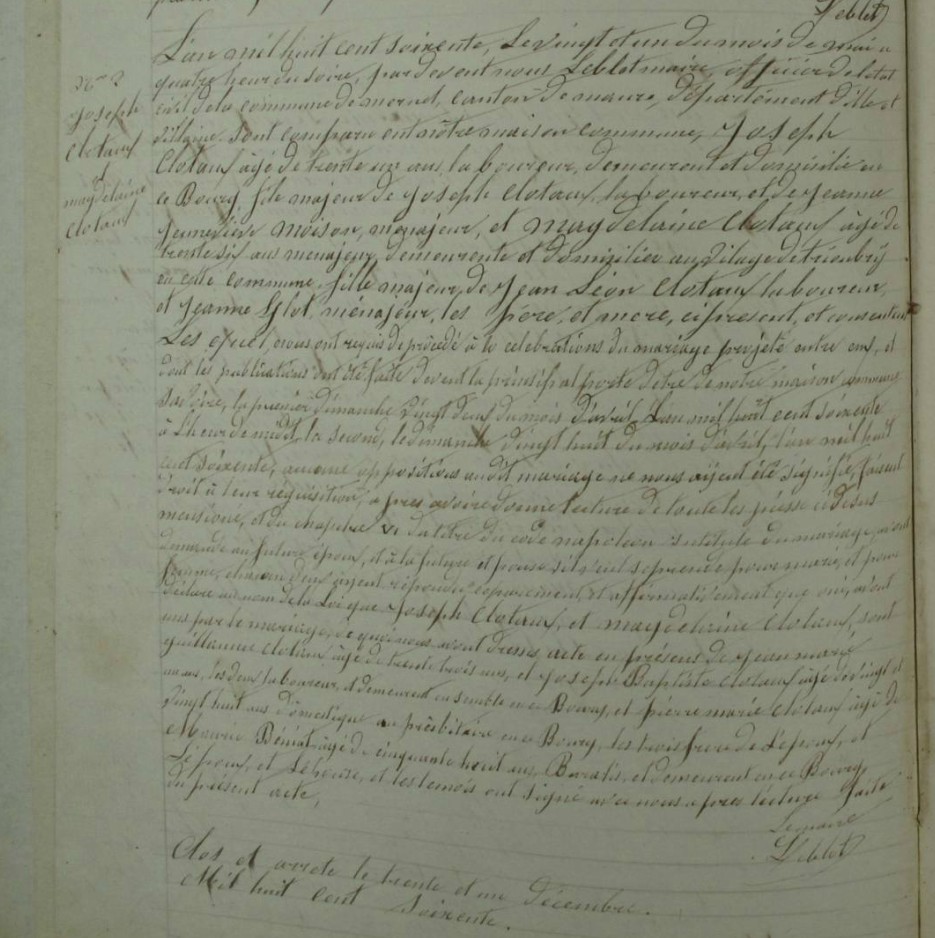 Leblot
L'an mil huit cent soixente, Le vingt et un du mois de mai a
quatre heur du soire, par devent nous Leblot maire, officier de letat
civil de la commune de mernel, canton de maure, département d'ille et
Vilaine. Sont comparu en nôtre maison commune, Joseph
Clotaux agé de trente un ans, laboureur, demeurent et domicilié en
ce Bourg, fils majeur de Joseph Clotaux, laboureur, et de Jeanne
moison, menajeur, et magdelaine Clotaux âgé de
trente six ans menajeur, demeurente et domizilier au vilage de
en cette commune, fille majeur, de Jean Léon Clotaux laboureur,
et Jeanne Glot, ménajeur, les père, et mere, ci present, et consentent
Les quel, nous ont requis de procédé à la celebrations du mariage projeté entre eux, et
dont les publications ont été faite devent la principal porte detre de nôtre maison commune
Savoire, la premier dimanche vingt deux du mois d'avril, L'an mil huit cent soixente
à l'heur de midi, la second, le dimanche vingt huit du mois d'avril, l'an mil huit
cent soixente, aucune oppositions audit mariage ne nous aijent été signifié, faisent
droit à leur requisition, apres avoire donné lecture de toute les piesse ci desus
mensioné, et du chapitre VI du titre du code napoleon intitulé du mariage, avont
demandé au futur époux, et à la future epouse s'il veul soprendre pour marie, et pour
femme, chacun deux aijent répondu separement, et affirmativement que oui, avont
déclare au nom de la Loi que Joseph Clotaux, et magdelaine Clotaux, sont
unis par le mariage, de quoi nous avont dressé acte en présens de Jean marie
guillaume Clotaux âgé de trente trois ans, et Joseph Baptiste Clotaux âgé de vingt et
un ans, les deux laboureur, et demeurent ensemble en ce Bourg, et pierre marie Clotaux âgé de
vingt huit ans domestique au présbitaire en ce Bourg, les trois frere de l'epoux, et
âgé de cinquante huit ans, et demeurent en ce Bourg,
L'époux, et et les temois ont signé avec nous apres lecture faite
du présent acte,
Le maire
Leblot
N^o 2
Joseph
Clotaux
et
magdelaine
Clotaux
Clos et arrete le trente et un Décembre.
Mil huit cent soixente.